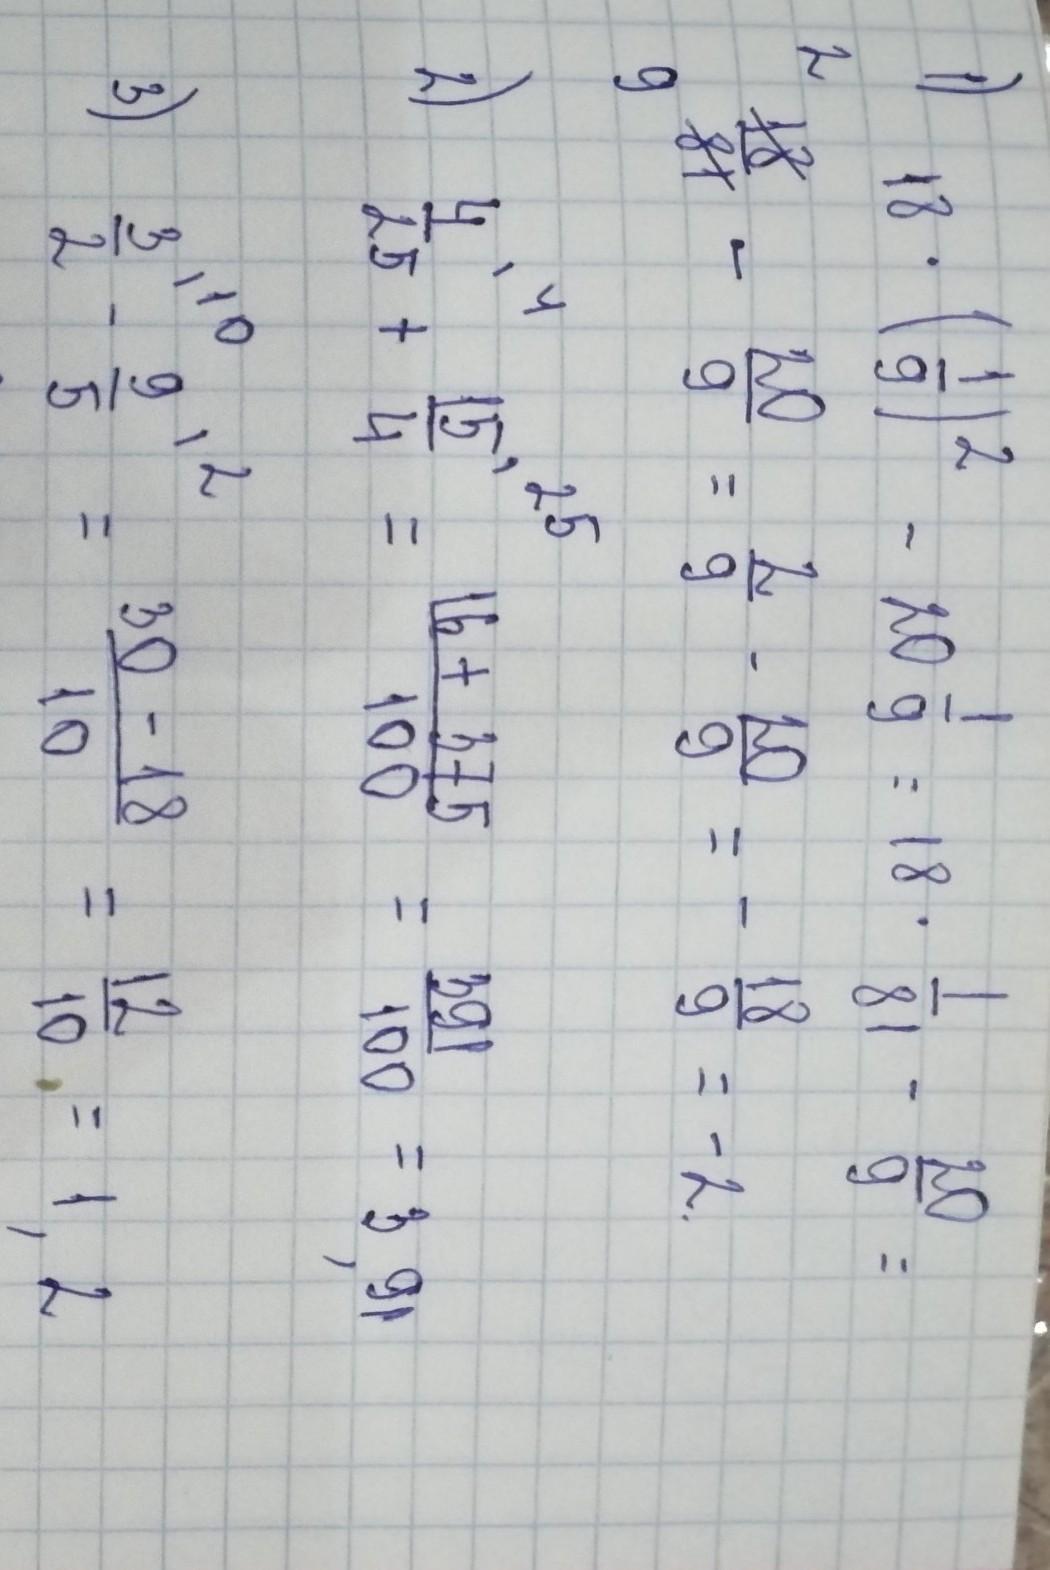 1) 18 · (1/9)² - 20 1/9 = 18 · 1/81 - 20/9 =
2 18/81 9 - 20/9 = 2/9 - 20/9 = - 18/9 = -2.
2) 4/25 ,4 + 15/4 ,25 = 16 + 375/100 = 391/100 = 3,91
3) 3/2 ,10 - 9/5 ,2 = 30 - 18/10 = 12/10 = 1,2